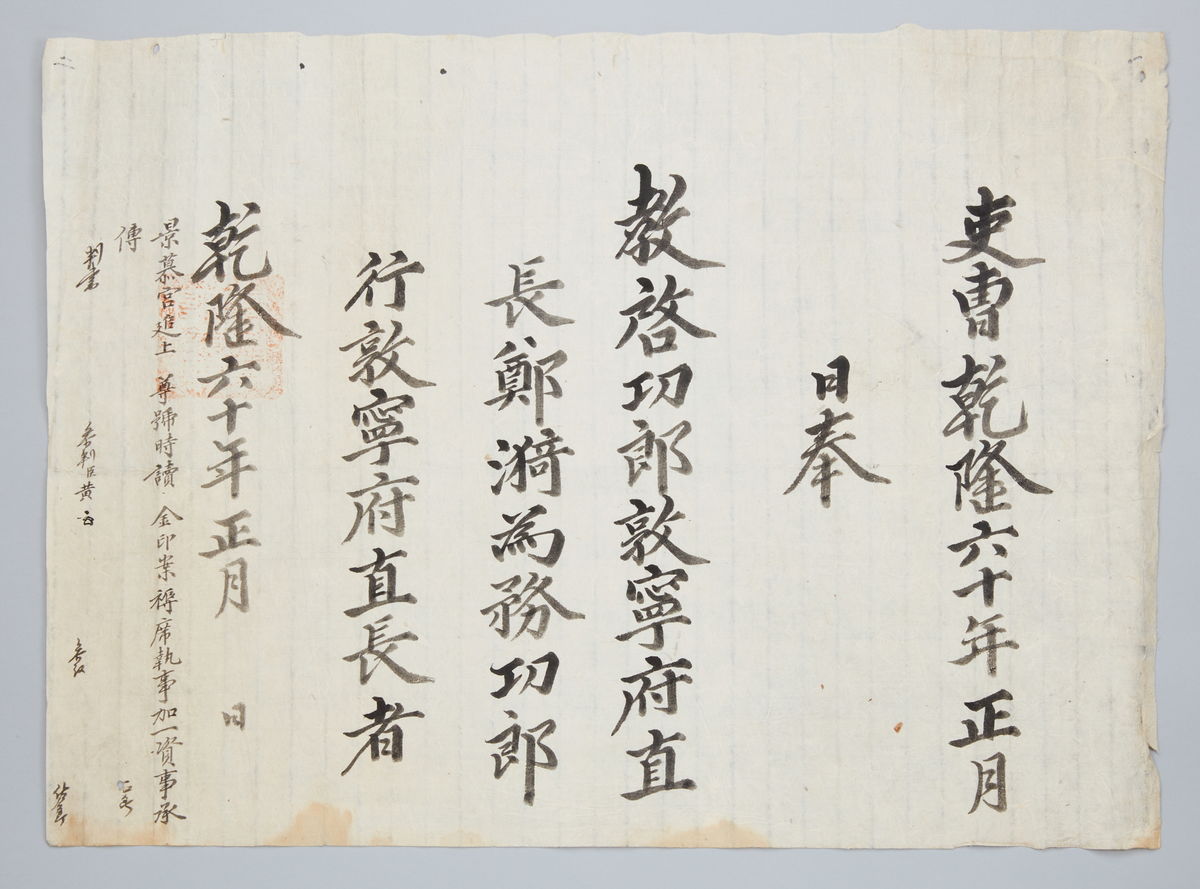 吏曹乾隆六十年正月
日奉
教啓功郎敦寧府直
長鄭漪為務功郎
行敦寧府直長者
乾隆六十年正月 日
景慕宮追上 尊號時讀 金印案褥席執事加一資事承
傳
判書
參判臣黃
參議
佐郎